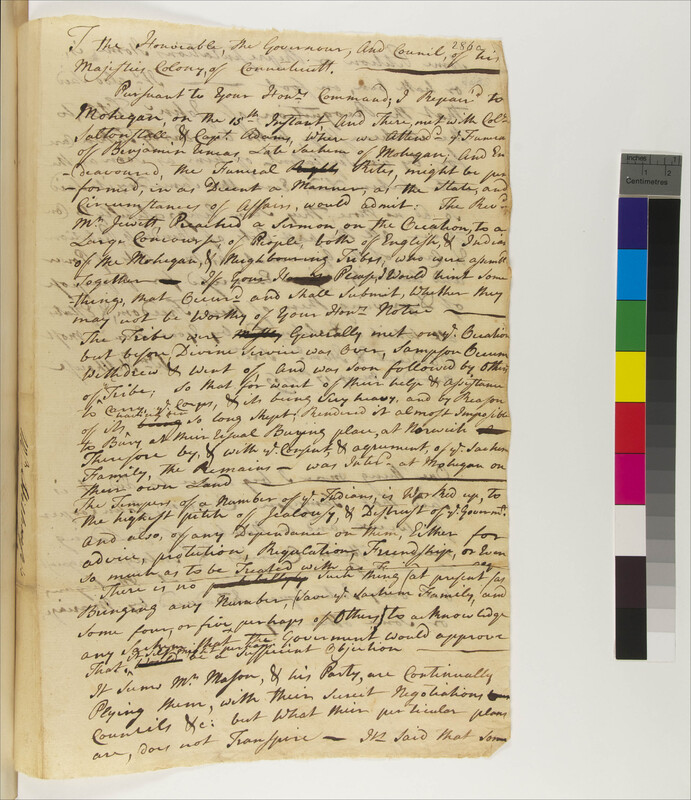 286a
To the Honorable, the Governour, And Council, of his
Majesties Colony, of Connecticutt.
Pursuant to Your Honrs Command; I Repair'd to
Mohegan, on the 15th Instant And There, met with Colo
Saltonstall & Capt. Adams, Where we Attend'd ye Funeral
of Benjamin Uncas, Late Sachem of Mohegan; And En
-deavoured, the Funeral Rights Rites, might be per
-formed, in as Decent a Manner, as the State, and
Circumstances of Affairs, would admit: The Revd
Mr Jewitt, Preached a Sermon, on the Occation, to a
Large Concourse, of People, both of English, & Indians
of the Mohegan, & Neighbouring Tribes, who were assembled
Together — If Your Please, I Would hint some
-things, that Occurd and shall Submit, Whether they
may not be Worthy of Your Honrs Notice
The Tribe were Generally met on ye Occation
but before Divine Service was Over, Sampson Occum
Withdrew & Went of, and was soon followed by Others
of Tribe; So that for want of their help & assistance
to Carry ye Corps, & its being Very heavy, and by Reason
of its So long Kept; Rendered it almost Impossible
to Bury at their usual Burying place, at Norwich
Therefore by, & with ye Consent, & agrement, of ye Sachem
Family, the Remains — was Interd at Mohegan on
their own Land
The Tempers of a Number of ye Indians, is Worked up, to
the highest pitch of Jealousy, & Distrust of ye Governmt
And also, of any Dependance on them, Either for
advice, protection, Regulation, Friendship, or Even
So much as to be Treated with as
There is no probability Such thing (at present) as
Bringing any Number, (Save ye Sachem Family, and
some four, or five, perhaps of Others) to acknowledge
any Sachem that the Goverment would approve
That it Self might perhaps be a Sufficient Objection
It Seems Mr Mason, & his Party, are Continually
Plying them, with their Secret Negotiations
Councils &c: but What their perticular plans
are, does not Transpire — Its Said that Some